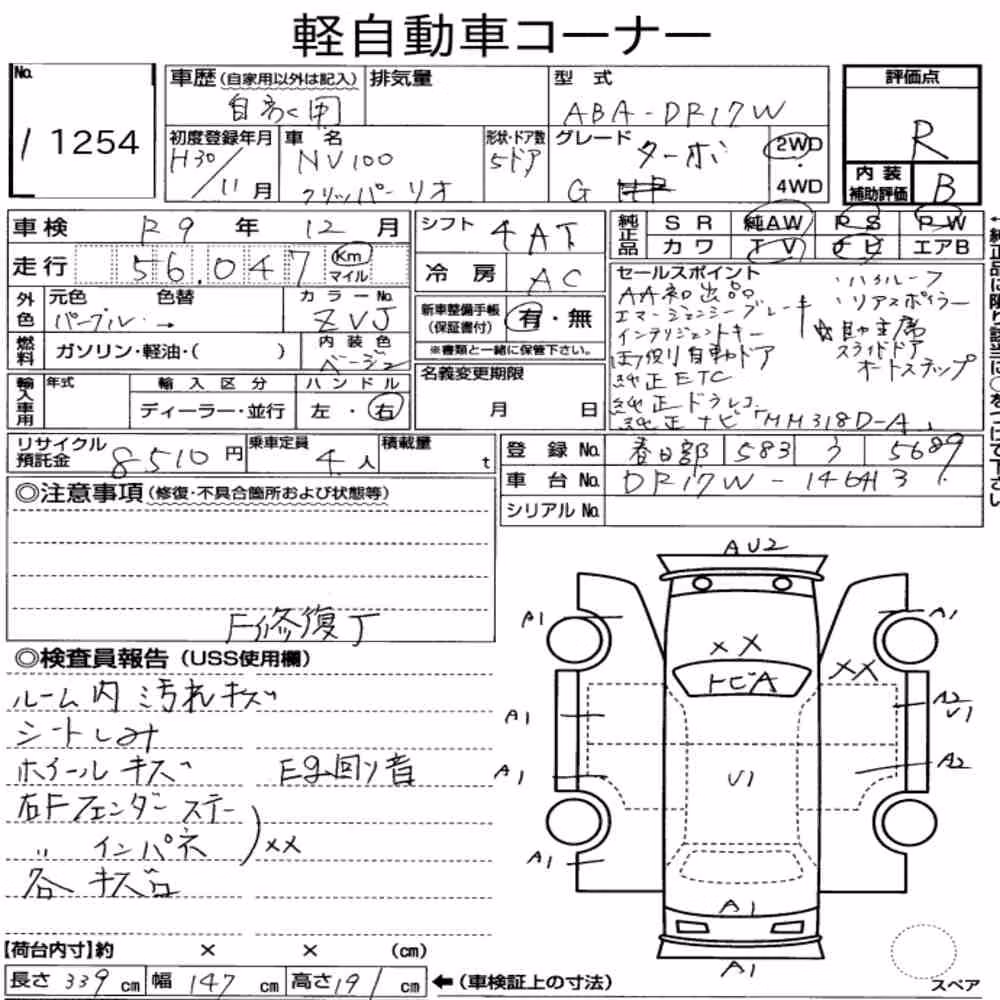 軽自動車コーナー
No. 1 1254
車歴 (自家用以外は記入) 自家用
排気量
型式 ABA-DR17W
初度登録年月 H30/11月
車名 NV100 クリッパーリオ
形状・ドア数 5ドア
グレード G ターボ
2WD・4WD
評価点 R
内装補助評価 B
車検 R9年 12月
走行 56,047 Km マイル
シフト 4AT
冷房 AC
純正品 SR 純AW PS PW
カワ TV ナビ エアB
外色 元色 パープル 色替 →
カラーNo. ZVJ
内装色 ベージュ
燃料 ガソリン・軽油・( )
新車整備手帳 (保証書付) 有・無
※書類と一緒に保管下さい。
輸入車用 年式 輸入区分 ディーラー・並行
ハンドル 左・右
名義変更期限 月 日
セールスポイント
AA初出品
エマージェンシーブレーキ
インテリジェントキー
両側自動ドア
純正ETC
純正ドラレコ
純正ナビ「MM318D-A」
・ハイルーフ
・リアスポイラー
助手席
スライドドア
オートステップ
リサイクル預託金 8510円
乗車定員 4人
積載量 t
登録No. 春日部 583 う 5689
車台No. DR17W-146413
シリアルNo.
◎注意事項 (修復・不具合箇所および状態等)
F修復丁
◎検査員報告 (USS使用欄)
ルーム内汚れキズ
シートしみ
ホイールキズ Eg回り音
右Fフェンダーステー
〃 インパネ ) XX
各キズ凸
【荷台内寸】約 × × (cm)
長さ 339 cm 幅 147 cm 高さ 191 cm ←(車検証上の寸法)
AU2
A1 A1
XX
XX
トビA
A1 A2 U1
A1 U1 A2
A1
A1
A1
スペア